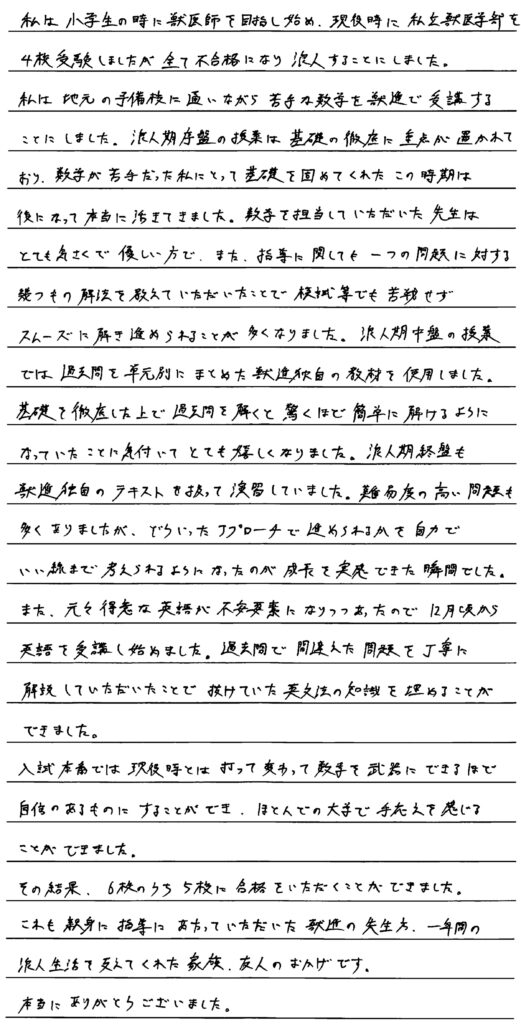 私は小学生の時に獣医師を目指し始め、現役時に私立獣医学部を
4校受験しましたが全て不合格になり浪人することにしました。
私は地元の予備校に通いながら苦手な数学を獣進で受講する
ことにしました。浪人期序盤の授業は基礎の徹底に重点が置かれて
おり、数学が苦手だった私にとって基礎を固めてくれたこの時期は
後になって本当に活きてきました。数学を担当していただいた先生は
とても気さくで優しい方で、また、指導に関しても一つの問題に対する
幾つもの解法を教えていただいたことで模試等でも苦労せず
スムーズに解き進められることが多くなりました。浪人期中盤の授業
では過去問を単元別にまとめた獣進独自の教材を使用しました。
基礎を徹底した上で過去問を解くと驚くほど簡単に解けるように
なっていたことに気付いてとても嬉しくなりました。浪人期終盤も
獣進独自のテキストを扱って演習していました。難易度の高い問題も
多くありましたが、どういったアプローチで進められるかを自力で
いい線まで考えられるようになったのが成長を実感できた瞬間でした。
また、元々得意な英語が不安要素になりつつあったので12月頃から
英語を受講し始めました。過去問で間違えた問題を丁寧に
解説していただいたことで抜けていた英文法の知識を埋めることが
できました。
入試本番では現役時とは打って変わって数学を武器にできるほど
自信のあるものにすることができ、ほとんどの大学で手応えを感じる
ことができました。
その結果、6校のうち5校に合格をいただくことができました。
これも親身に指導にあたっていただいた獣進の先生方、一年間の
浪人生活を支えてくれた家族、友人のおかげです。
本当にありがとうございました。